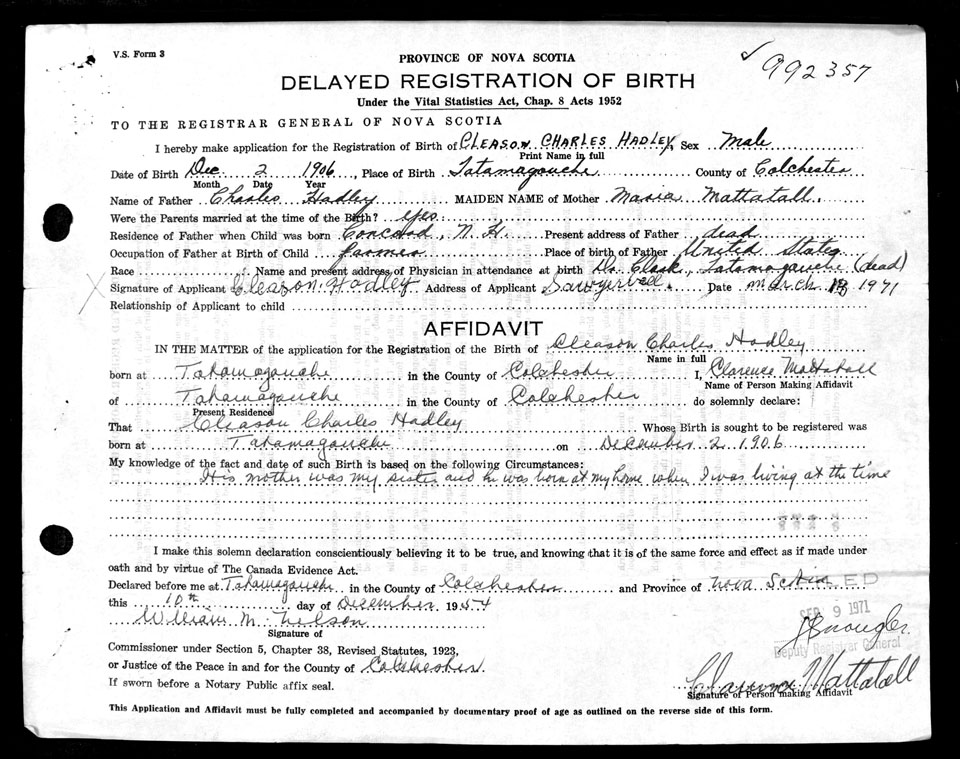 V.S. Form 3
PROVINCE OF NOVA SCOTIA
992357
DELAYED REGISTRATION OF BIRTH
Under the Vital Statistics Act, Chap. 8 Acts 1952
TO THE REGISTRAR GENERAL OF NOVA SCOTIA
I hereby make application for the Registration of Birth of CLEASON CHARLES HADLEY, Sex Male
Print Name in full
Date of Birth Dec 2 1906, Place of Birth Tatamagouche County of Colchester
Month Date Year
Name of Father Charles Hadley MAIDEN NAME of Mother Mattatall.
Were the Parents married at the time of the Birth? yes
Residence of Father when Child was born Concord, N.H. Present address of Father dead
Occupation of Father at Birth of Child farmer Place of birth of Father United States
Race Name and present address of Physician in attendance at birth Dr. Clark, Tatamagouche (dead)
Signature of Applicant Cleason Hadley Address of Applicant Date March 1971
Relationship of Applicant to child
AFFIDAVIT
IN THE MATTER of the application for the Registration of the Birth of Cleason Charles Hadley
Name in full
born at Tatamagouche in the County of Colchester I, Clarence Mattatall
Name of Person Making Affidavit
of Tatamagouche in the County of Colchester do solemnly declare:
Present Residence
That Cleason Charles Hadley Whose Birth is sought to be registered was
born at Tatamagouche on December 2, 1906
My knowledge of the fact and date of such Birth is based on the following Circumstances:
His mother was my sister and he was born at my home when I was living at the time
I make this solemn declaration conscientiously believing it to be true, and knowing that it is of the same force and effect as if made under
oath and by virtue of The Canada Evidence Act.
Declared before me at Tatamagouche in the County of Colchester and Province of Nova Scotia
this 10th day of December 1954
SEP 9 1971
William M. Nelson
Signature of
Deputy Registrar General
Commissioner under Section 5, Chapter 38, Revised Statutes, 1923,
or Justice of the Peace in and for the County of Colchester.
Clarence Mattatall
If sworn before a Notary Public affix seal.
Signature of Person making Affidavit
This Application and Affidavit must be fully completed and accompanied by documentary proof of age as outlined on the reverse side of this form.